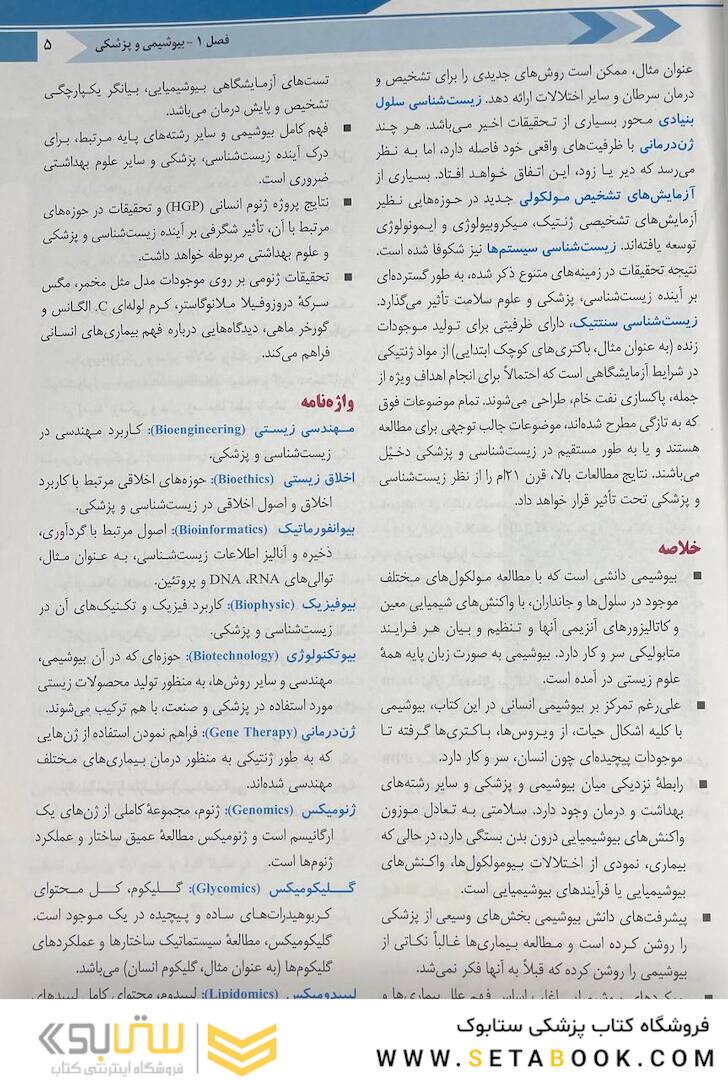 فصل ۱ – بیوشیمی و پزشکی
۵
عنوان مثال، ممکن است روش‌های جدیدی را برای تشخیص و
درمان سرطان و سایر اختلالات ارائه دهد. زیست‌شناسی سلول
بنیادی محور بسیاری از تحقیقات اخیر می‌باشد. هر چند
ژن‌درمانی با ظرفیت‌های واقعی خود فاصله دارد، اما به نظر
می‌رسد که دیر یا زود، این اتفاق خواهد افتاد. بسیاری از
آزمایش‌های تشخیص مولکولی جدید در حوزه‌هایی نظیر
آزمایش‌های تشخیصی ژنتیک، میکروبیولوژی و ایمونولوژی
توسعه یافته‌اند. زیست‌شناسی سیستم‌ها نیز شکوفا شده است.
نتیجه تحقیقات در زمینه‌های متنوع ذکر شده، به طور گسترده‌ای
بر آینده زیست‌شناسی، پزشکی و علوم سلامت تأثیر می‌گذارد.
زیست‌شناسی سنتتیک، دارای ظرفیتی برای تولید موجودات
زنده (به عنوان مثال، باکتری‌های کوچک ابتدایی) از مواد ژنتیکی
در شرایط آزمایشگاهی است که احتمالاً برای انجام اهداف ویژه از
جمله، پاکسازی نفت خام، طراحی می‌شوند. تمام موضوعات فوق
که به تازگی مطرح شده‌اند، موضوعات جالب توجهی برای مطالعه
هستند و یا به طور مستقیم در زیست‌شناسی و پزشکی دخیل
می‌باشند. نتایج مطالعات بالا، قرن ۲۱ام را از نظر زیست‌شناسی
و پزشکی تحت تأثیر قرار خواهد داد.
خلاصه
■ بیوشیمی دانشی است که با مطالعه مولکول‌های مختلف
موجود در سلول‌ها و جانداران، با واکنش‌های شیمیایی معین
و کاتالیزورهای آنزیمی آنها و تنظیم و بیان هر فرایند
متابولیکی سر و کار دارد. بیوشیمی به صورت زبان پایه همهٔ
علوم زیستی در آمده است.
■ علی‌رغم تمرکز بر بیوشیمی انسانی در این کتاب، بیوشیمی
با کلیه اشکال حیات، از ویروس‌ها، باکتری‌ها گرفته تا
موجودات پیچیده‌ای چون انسان، سر و کار دارد.
■ رابطهٔ نزدیکی میان بیوشیمی و پزشکی و سایر رشته‌های
بهداشت و درمان وجود دارد. سلامتی به تعادل موزون
واکنش‌های بیوشیمیایی درون بدن بستگی دارد، در حالی که
بیماری، نمودی از اختلالات بیومولکول‌ها، واکنش‌های
بیوشیمیایی یا فرآیندهای بیوشیمیایی است.
■ پیشرفت‌های دانش بیوشیمی بخش‌های وسیعی از پزشکی
را روشن کرده است و مطالعه بیماری‌ها غالباً نکاتی از
بیوشیمی را روشن کرده که قبلاً به آنها فکر نمی‌شد.
تست‌های آزمایشگاهی بیوشیمیایی، بیانگر یکپارچگی
تشخیص و پایش درمان می‌باشد.
■ فهم کامل بیوشیمی و سایر رشته‌های پایه مرتبط، برای
درک آینده زیست‌شناسی، پزشکی و سایر علوم بهداشتی
ضروری است.
■ نتایج پروژه ژنوم انسانی (HGP) و تحقیقات در حوزه‌های
مرتبط با آن، تأثیر شگرفی بر آینده زیست‌شناسی و پزشکی
و علوم بهداشتی مربوطه خواهد داشت.
■ تحقیقات ژنومی بر روی موجودات مدل مثل مخمر، مگس
سرکهٔ دروزوفیلا ملانوگاستر، کرم لوله‌ای C. الگانس و
گورخر ماهی، دیدگاه‌هایی درباره فهم بیماری‌های انسانی
فراهم می‌کند.
واژه‌نامه
مهندسی زیستی (Bioengineering): کاربرد مهندسی در
زیست‌شناسی و پزشکی.
اخلاق زیستی (Bioethics): حوزه‌های اخلاقی مرتبط با کاربرد
اخلاق و اصول اخلاقی در زیست‌شناسی و پزشکی.
بیوانفورماتیک (Bioinformatics): اصول مرتبط با گردآوری،
ذخیره و آنالیز اطلاعات زیست‌شناسی، به عنوان مثال،
توالی‌های DNA ،RNA و پروتئین.
بیوفیزیک (Biophysic): کاربرد فیزیک و تکنیک‌های آن در
زیست‌شناسی و پزشکی.
بیوتکنولوژی (Biotechnology): حوزه‌ای که در آن بیوشیمی،
مهندسی و سایر روش‌ها، به منظور تولید محصولات زیستی
مورد استفاده در پزشکی و صنعت، با هم ترکیب می‌شوند.
ژن‌درمانی (Gene Therapy): فراهم نمودن استفاده از ژن‌هایی
که به طور ژنتیکی به منظور درمان بیماری‌های مختلف
مهندسی شده‌اند.
ژنومیکس (Genomics): ژنوم، مجموعهٔ کاملی از ژن‌های یک
ارگانیسم است و ژنومیکس مطالعهٔ عمیق ساختار و عملکرد
ژنوم‌ها است.
گلیکومیکس (Glycomics): گلیکوم، کل محتوای
کربوهیدرات‌های ساده و پیچیده در یک موجود است.
گلیکومیکس، مطالعهٔ سیستماتیک ساختارها و عملکردهای
گلیکوم‌ها (به عنوان مثال، گلیکوم انسان) می‌باشد.
لیپیدومیکس (Lipidomics): لیپیدوم، محتوای کامل لیپیدهای
فروشگاه کتاب پزشکی ستابوک
WWW.SETABOOK.COM
ستابوک
فروشگاه اینترنتی کتاب